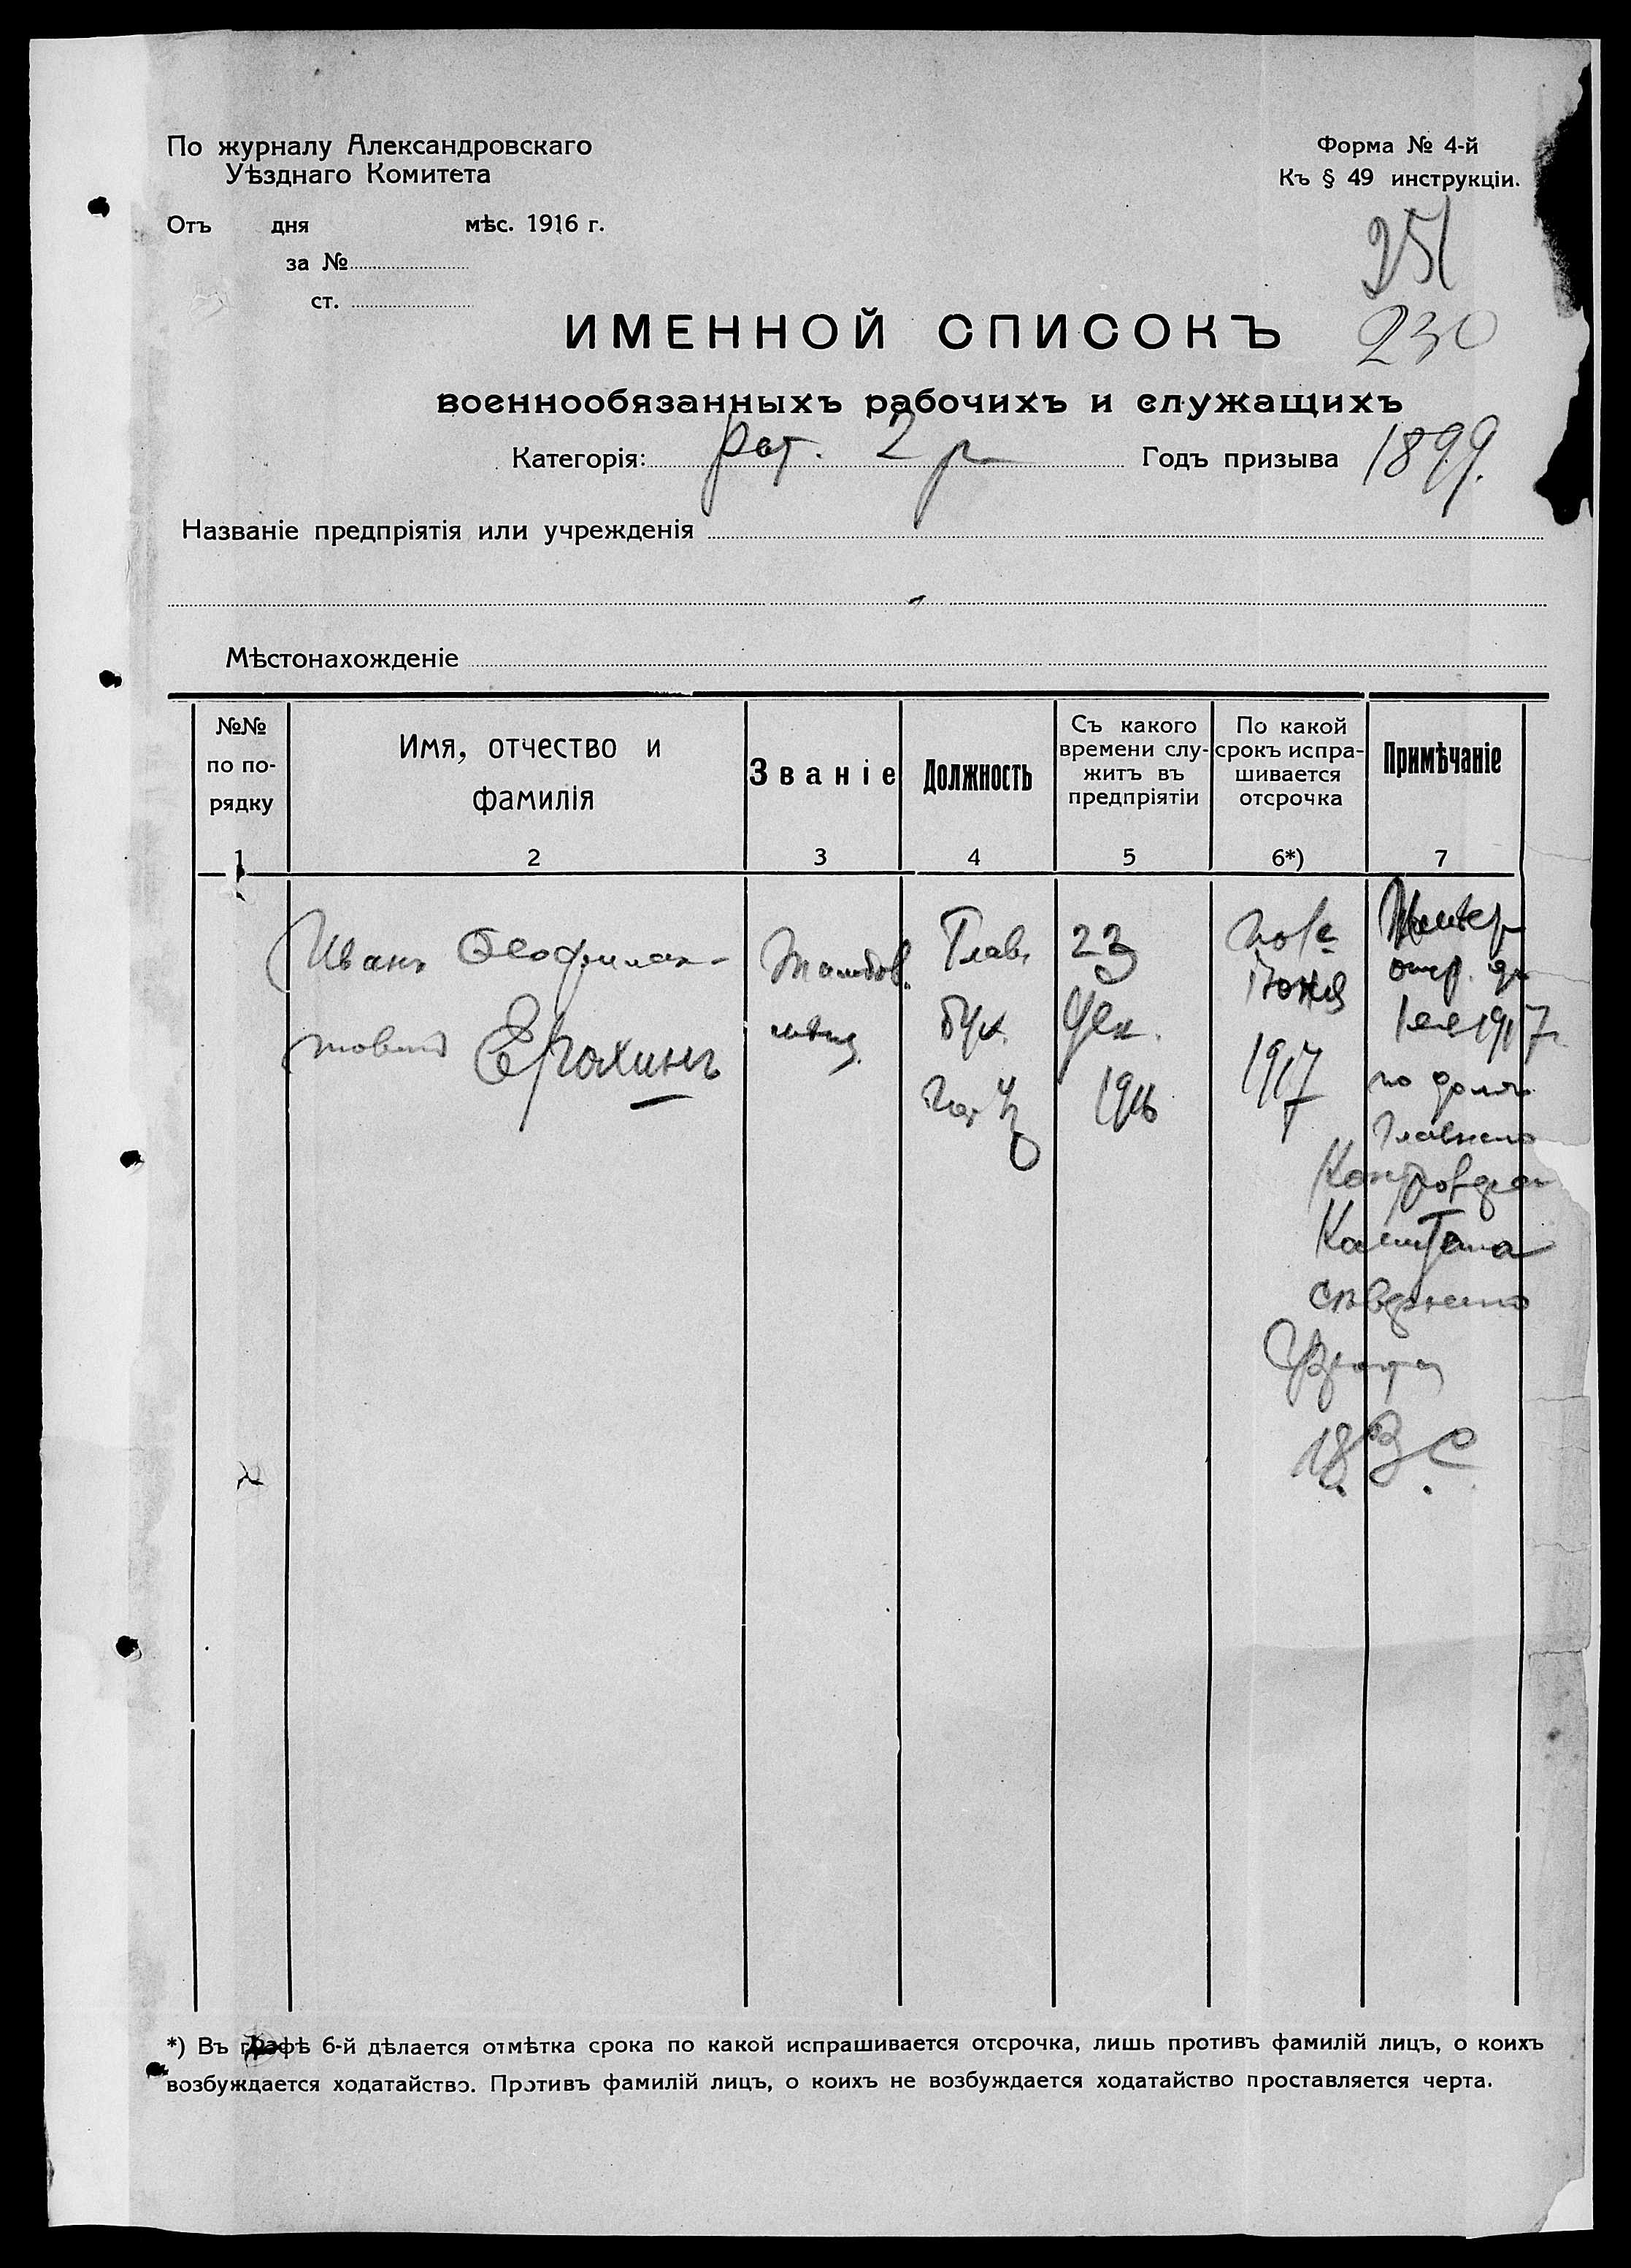 По журналу Александровскаго
Уѣзднаго Комитета
Отъ дня мѣс. 1916 г.
за №
ст.
Форма № 4-й
Къ § 49 инструкціи.
251
230
ИМЕННОЙ СПИСОКЪ
военнообязанныхъ рабочихъ и служащихъ
Категорія: рат. 2 р Годъ призыва 1899.
Названіе предпріятія или учрежденія
Мѣстонахожденіе
№№ по по- рядку
Имя, отчество и фамилія
Званіе
Должность
Съ какого времени слу- житъ въ предпріятіи
По какой срокъ испра- шивается отсрочка
Примѣчаніе
1 2 3 4 5 6*) 7
Иванъ Ѳеофилак-
товичъ Ерохинъ
Глав.
бух.
23
Дек.
1916
по 1е
Іюня
1917
отср. до
1917
по долж.
Главнаго
18 В С
*) Въ графѣ 6-й дѣлается отмѣтка срока по какой испрашивается отсрочка, лишь противъ фамилій лицъ, о коихъ
возбуждается ходатайство. Противъ фамилій лицъ, о коихъ не возбуждается ходатайство проставляется черта.